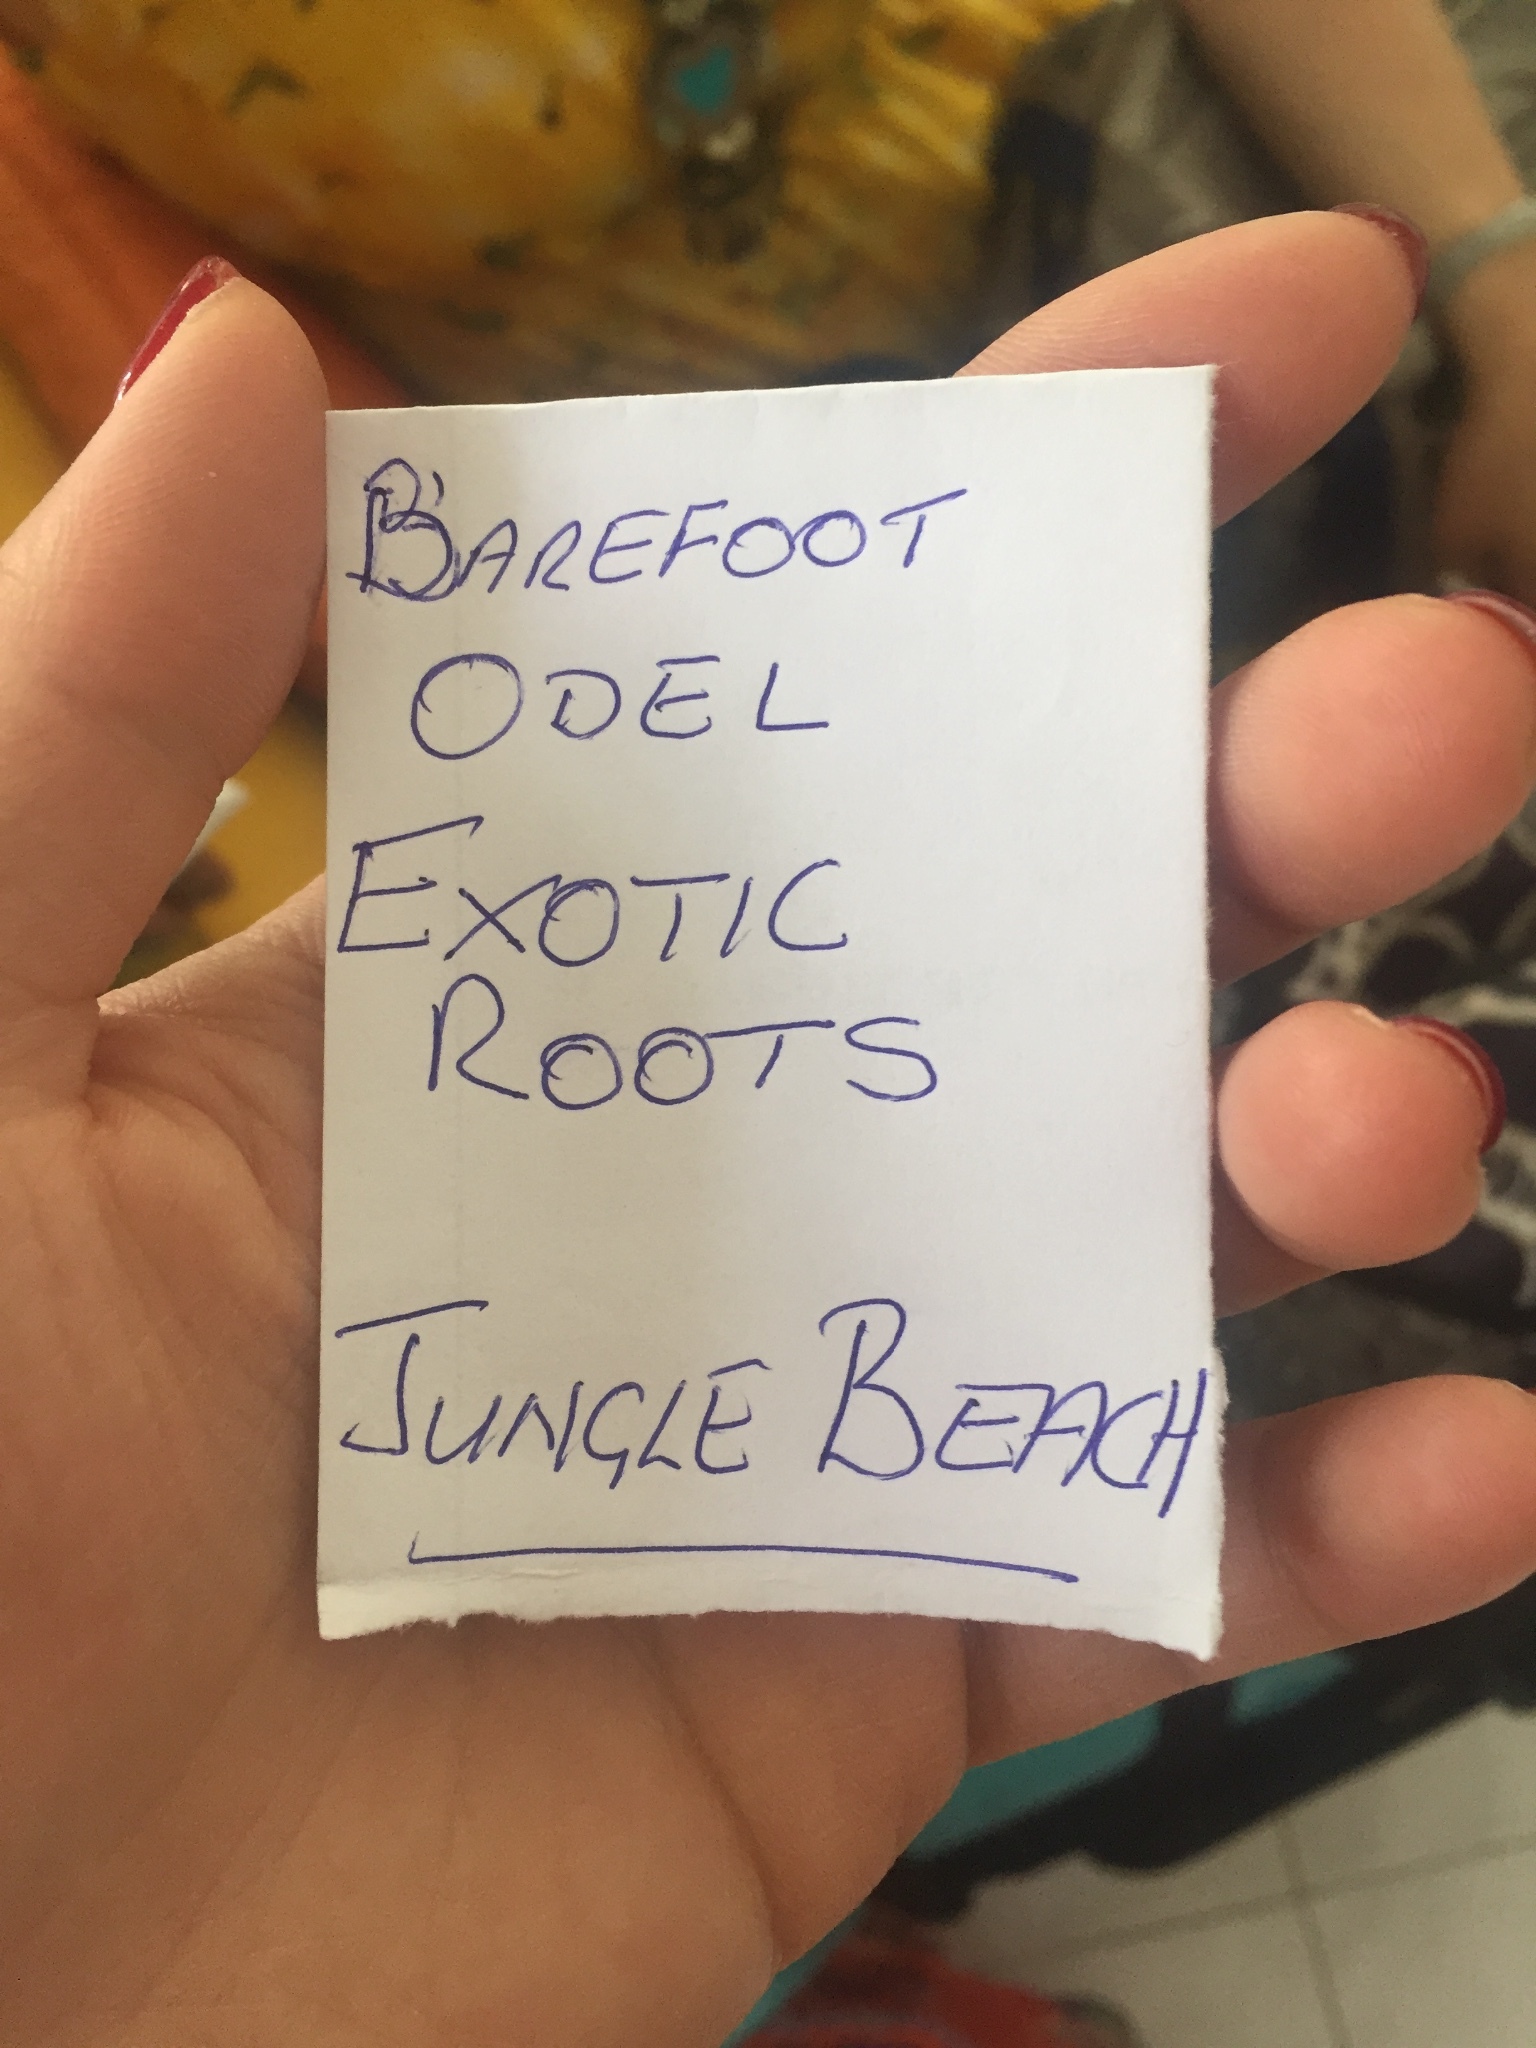 BAREFOOT
ODEL
EXOTIC
ROOTS
JUNGLE BEACH